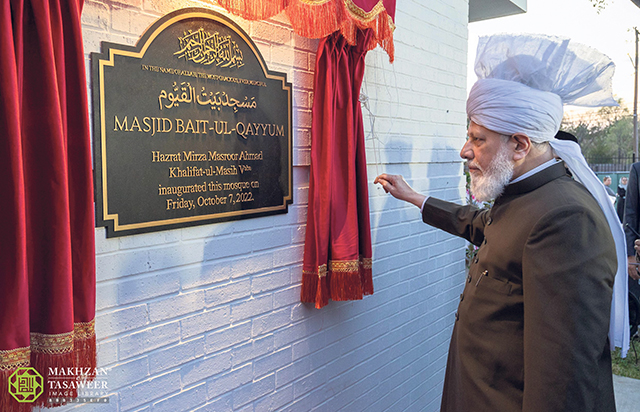 بسم الله الرحمن الرحيم
IN THE NAME OF ALLAH, THE MOST GRACIOUS, EVER MERCIFUL
مسجد بيت القيوم
MASJID BAIT-UL-QAYYUM
Hazrat Mirza Masroor Ahmad
Khalifat-ul-Masih Vaba
inaugurated this mosque on
Friday, October 7, 2022.
MAKHZAN
OF
TASAWEER
IMAGE
LIBRARY